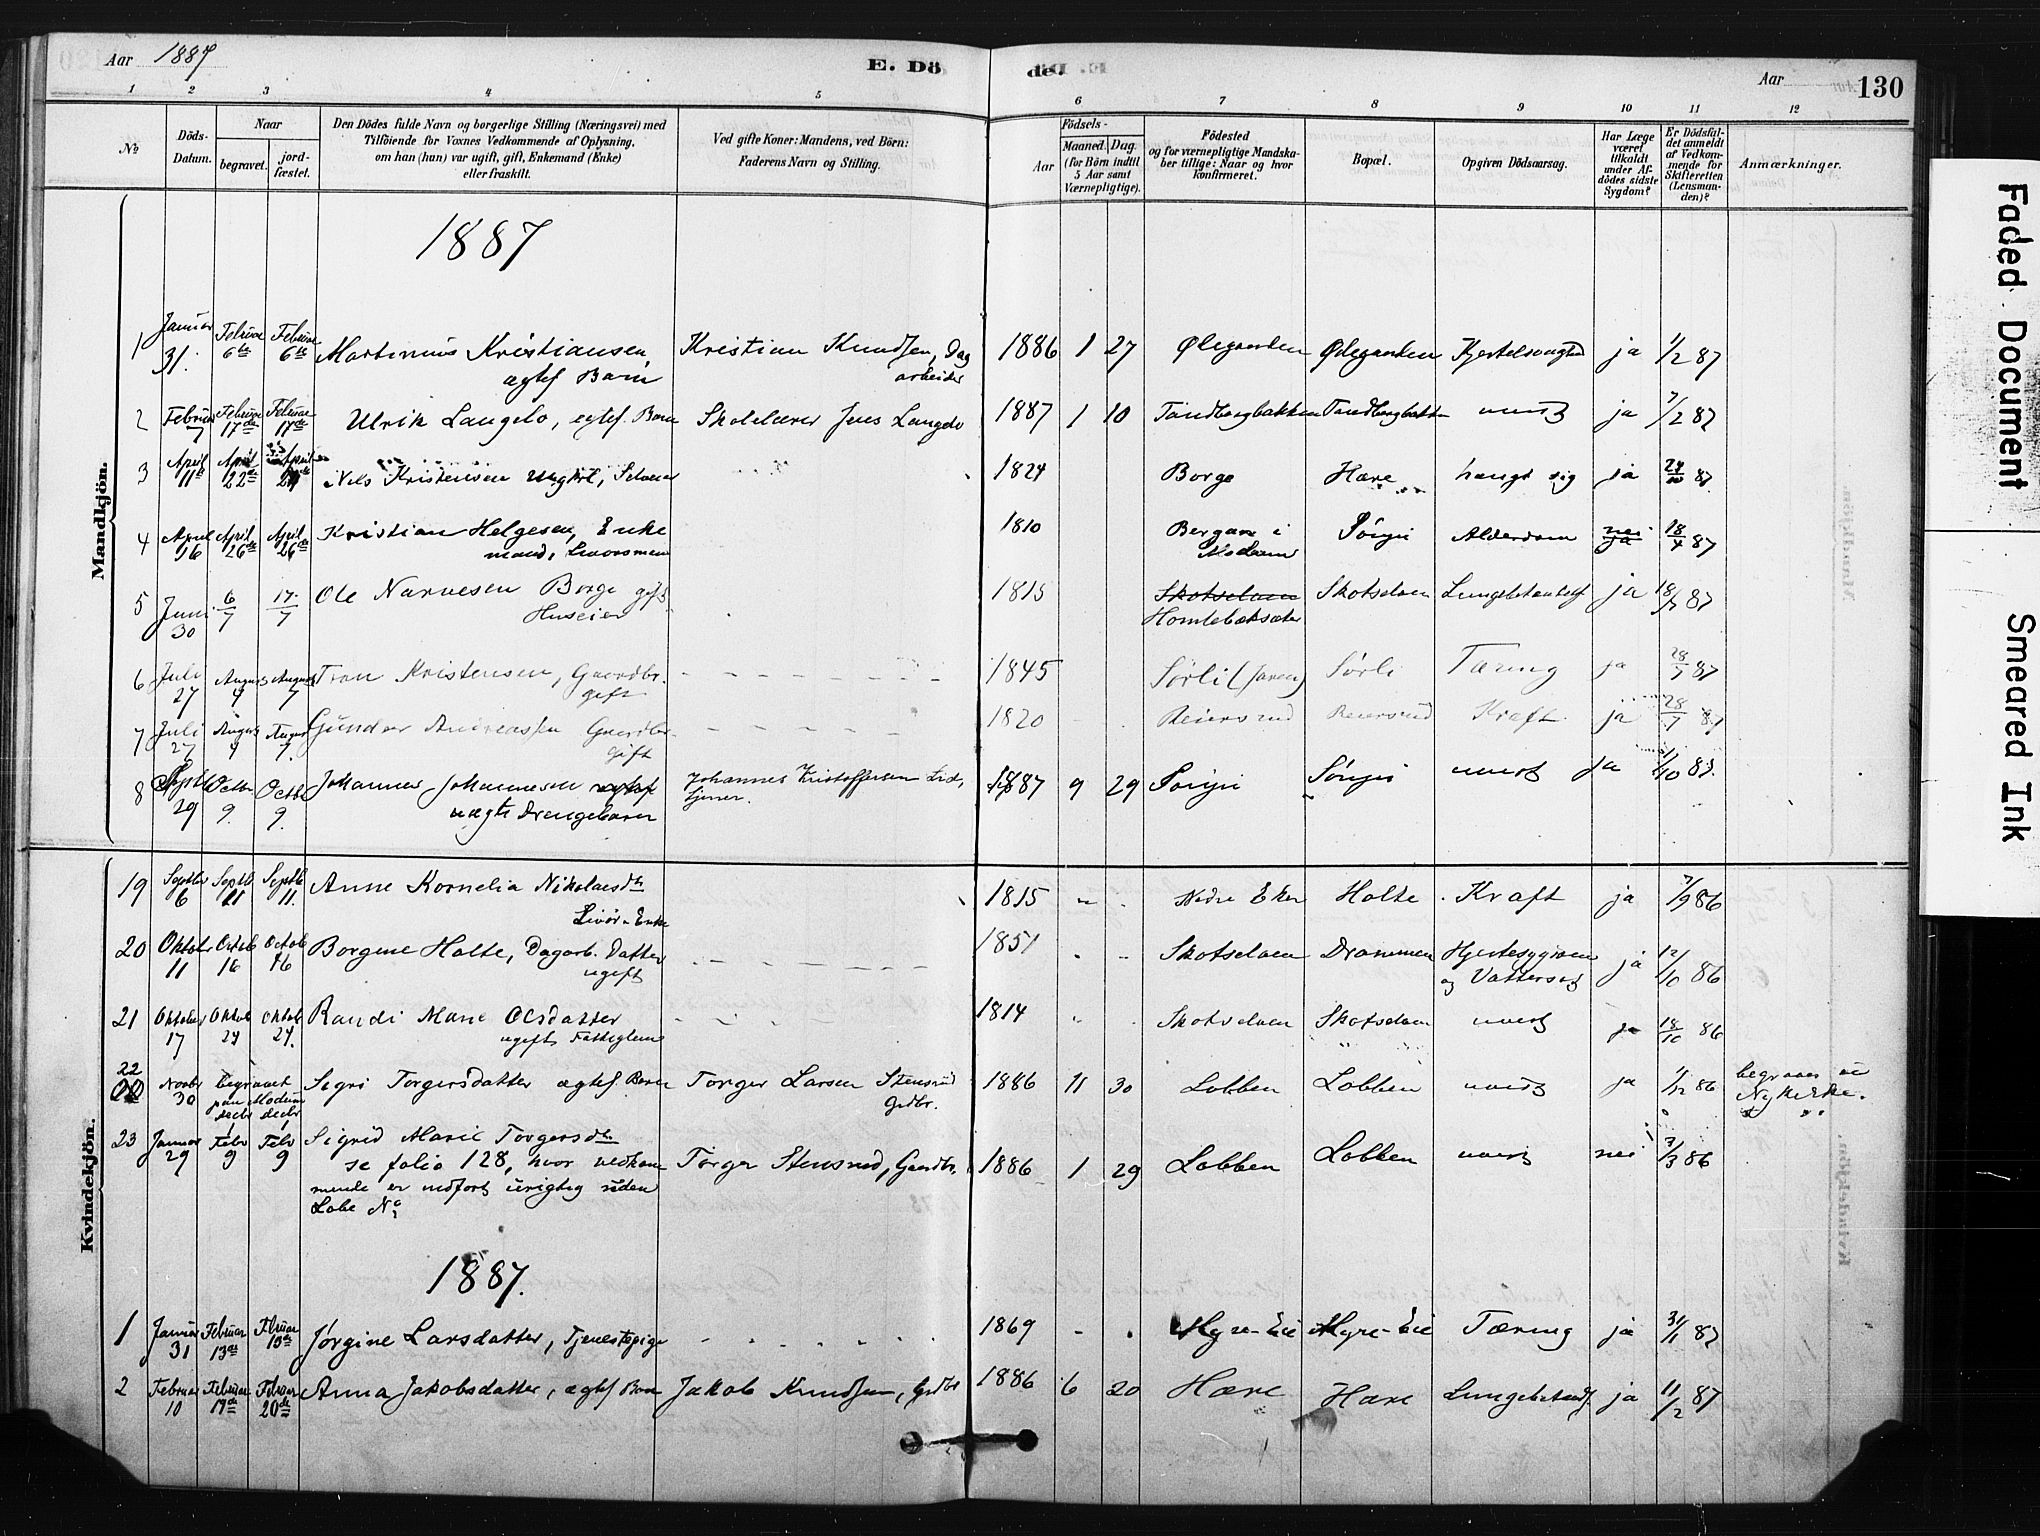 Aar 1887
E. Dö
de.
Aar
130
1 2 3 4 5 6 7 8 9 10 11 12
No
Döds-Datum.
Naar
begravet.
jord-fæstet.
Den Dödes fulde Navn og borgerlige Stilling (Næringsvei) med
Tilföiende for Voxnes Vedkommende af Oplysning,
om han (hun) var ugift, gift, Enkemand (Enke)
eller fraskilt.
Ved gifte Koner: Mandens, ved Börn:
Faderens Navn og Stilling.
Födsels-
Aar
Maaned. Dag.
(for Börn indtil
5 Aar samt
Værnepligtige).
Födested
og for værnepligtige Mandska-
ber tillige: Naar og hvor
konfirmeret.
Bopæl.
Opgiven Dödsaarsag.
Har Læge
været
tilkaldt
under Af-
dödes sidste
Sygdom?
Er Dödsfal-
det anmeldt
af Vedkom-
mende for
Skifteretten
(Lensman-
den)?
Anmærkninger.
Mandkjön.
1887
1 Januar 31. Februar 6te Februar 6te Martinius Kristiansen, Kristian Knudsen, Dag 1886 1 27 ja 1/2 87
ægtef Barn arbeider
2 Februar 7 Februar 17de Februar 17de Ulrik Langelo, ægtef. Barn Skolelærer Jens Langelo 1887 1 10 Tandbergbakken Tandbergbakken uvist ja 7/2 87
3 April 11te April 22de April Nils Kristensen Ungkarl, 1824 Borge Hære hængt sig ja 87
4 April 16 April 26de April 26de Kristian Helgesen, Enke 1810 Bergan i Sønju Alderdom nei 18/4 87
mand, Modum ja
5 Juni 30 6/7 17/7 Ole Narvesen Borge gift 1815 Skotselven Skotselven Lungebetændels ja 18/7 87
Huseier Homlebæksæter
6 Juli 27 August 7 August 7 Kristensen, Gaardbr. 1845 Sørli Sørli Tæring ja 28/7 87
gift
7 Juli 27 August 7 August 7. Gunder Andreassen Gaardbr. 1820 Reiersrud Reiersrud Kræft ja 28/7 87
gift
8 Septb 29 Octbr 9. Octbr 9. Johannes Johannesen Johannes Kristoffersen 1887 9 29 Sønju Sønju uvist ja 1/10 87.
uægte Drengebarn
Kvindekjön.
19 Septbr 6 Septb 11 Septb 11. Anne Kornelia Nikolaisdtr 1815 Nedre Eker Holte Kræft ja 7/9 86
Enke
20 Oktob 11 Octob 16 Octob 16 Borgine Holte, Dagarb. Datter 1851 Skotselven Drammen Hjertesygdom ja 12/10 86
ugift og Vattersot
21 Oktober 17 Oktob 24 Oktob 24. Randi Marie Olsdatter 1814 Skotselven Skotselven uvist ja 18/10 86
ugift Fattiglem
22 Novbr 30 begravet Sigri Torgersdatter ægtef. Barn Torger Larsen Stensrud 1886 11 30 Lobben Lobben uvist ja 1/12 86
paa Modum Grdbr.
decbr decbr
23 Januar 29 Febr 9 Febr 9 Sigrid Marie Torgersdtr
se folio 128, hvor vedkom Torger Stensrud, Gaardbr. 1886 1 29 Lobben Lobben uvist nei 3/3 86
mende er indført urigtig uden
Lobe No
1887.
1 Januar 31 Februar 13de Februar 13de Jørgine Larsdatter, Tjenestepige 1869 Myre-Eie Myre-Eie Tæring ja 31/1 87
2 Februar 10 Februar Februar 20de Anna Jakobsdatter, ægtef Barn Jakob Knudsen, Grdbr 1886 6 20 Hære Hære Lungebetænd. ja 11/2 87
Faded Document
Smeared Ink